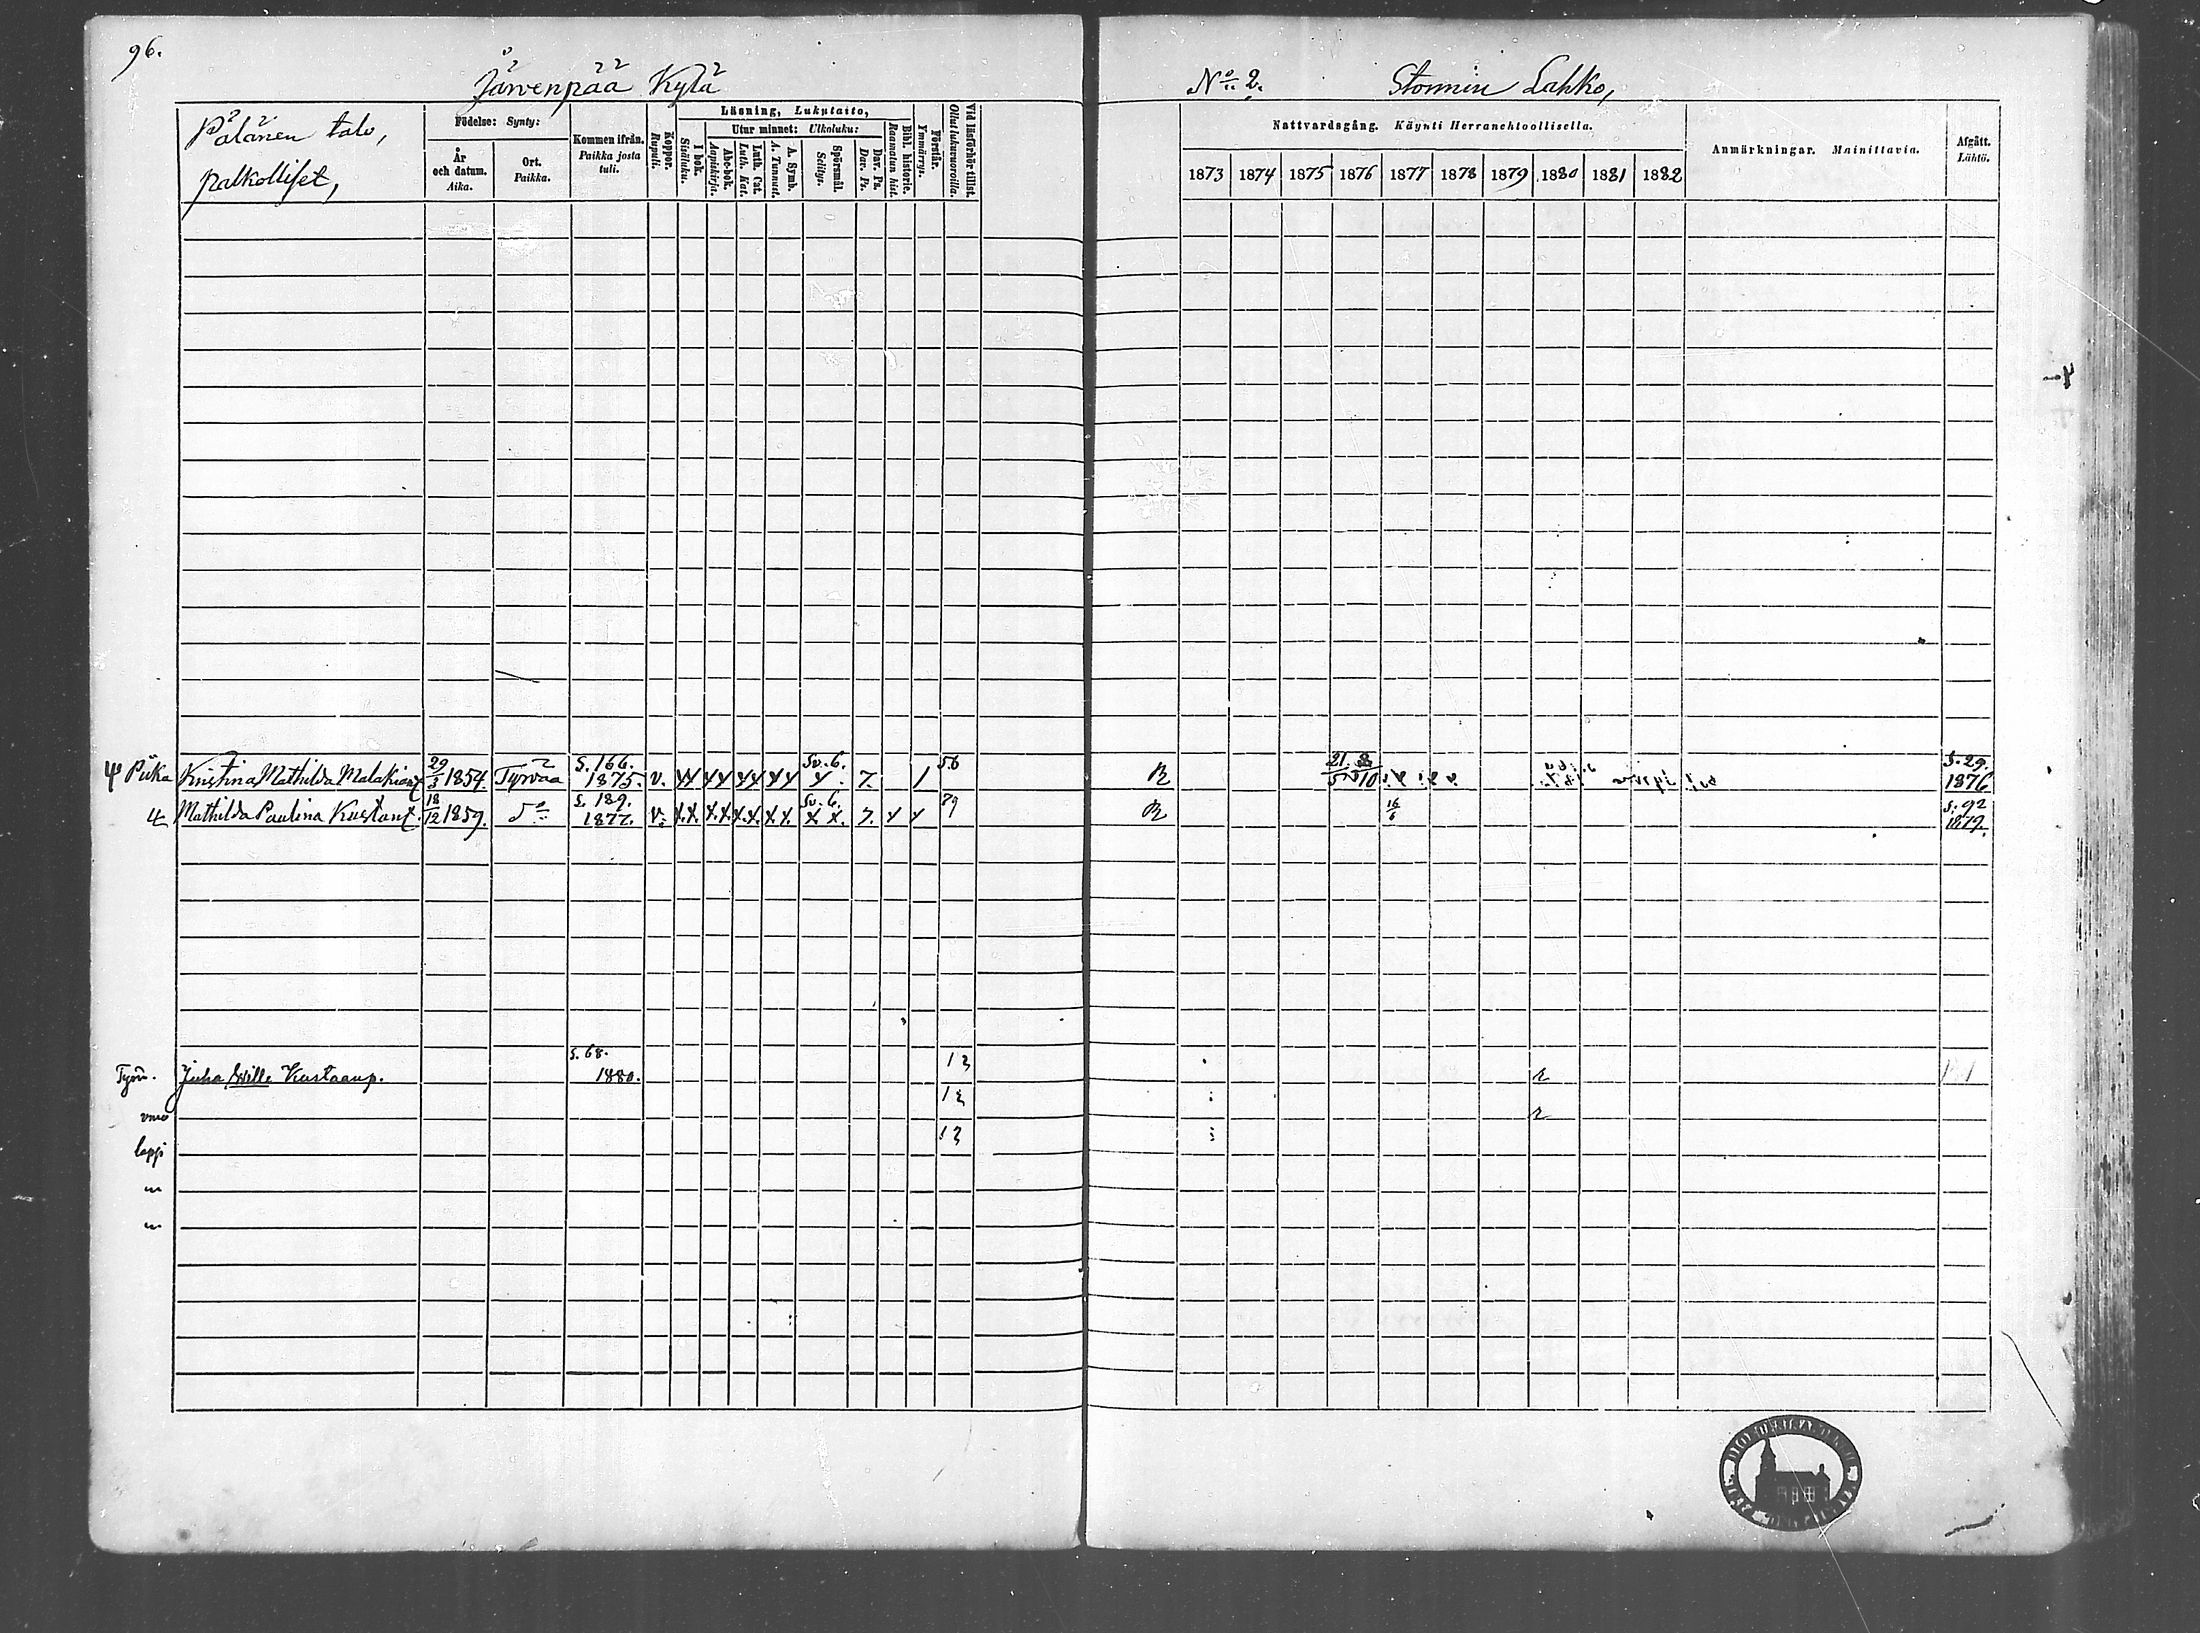 96.
Järvenpää Kylä
No 2. Stormin Lahko,
Pälänen talo,
palkolliset,
Födelse: Synty:
År och datum. Aika.
Ort. Paikka.
Kommen ifrån. Paikka josta tuli.
Koppor. Rupuli.
Läsning, Lukutaito,
I bok. Sisäluku.
Utur minnet: Ulkoluku:
Abc-bok. Aapiskirja.
Luth. Cat. Luth. Kat.
A. Symb. A. Tunnust.
Spörsmål. Selitys.
Dav. Ps. Dav. Ps.
Bibl. historie. Raamatun hist.
Förstår. Ymmärrys.
Vid läsförhör tillst. Ollut lukuvuoroilla.
Nattvardsgång. Käynti Herranehtoollisella.
1873 1874 1875 1876 1877 1878 1879 1880 1881 1882
Anmärkningar. Mainittavia.
Afgått. Lähtö.
Piika Kristina Mathilda Malakiant. 29/3 1854. Tyrvää S. 166. 1875. v. Sv. 6. 7. 1 56 R 21/5 8/10 S. 29. 1876
Mathilda Paulina Kustant. 18/12 1859. do S. 189. 1877. v. Sv. 6. 7. 79 R 16/6 S. 92 1879.
Työm. Juha Wille Kustaanp. S. 68. 1880.